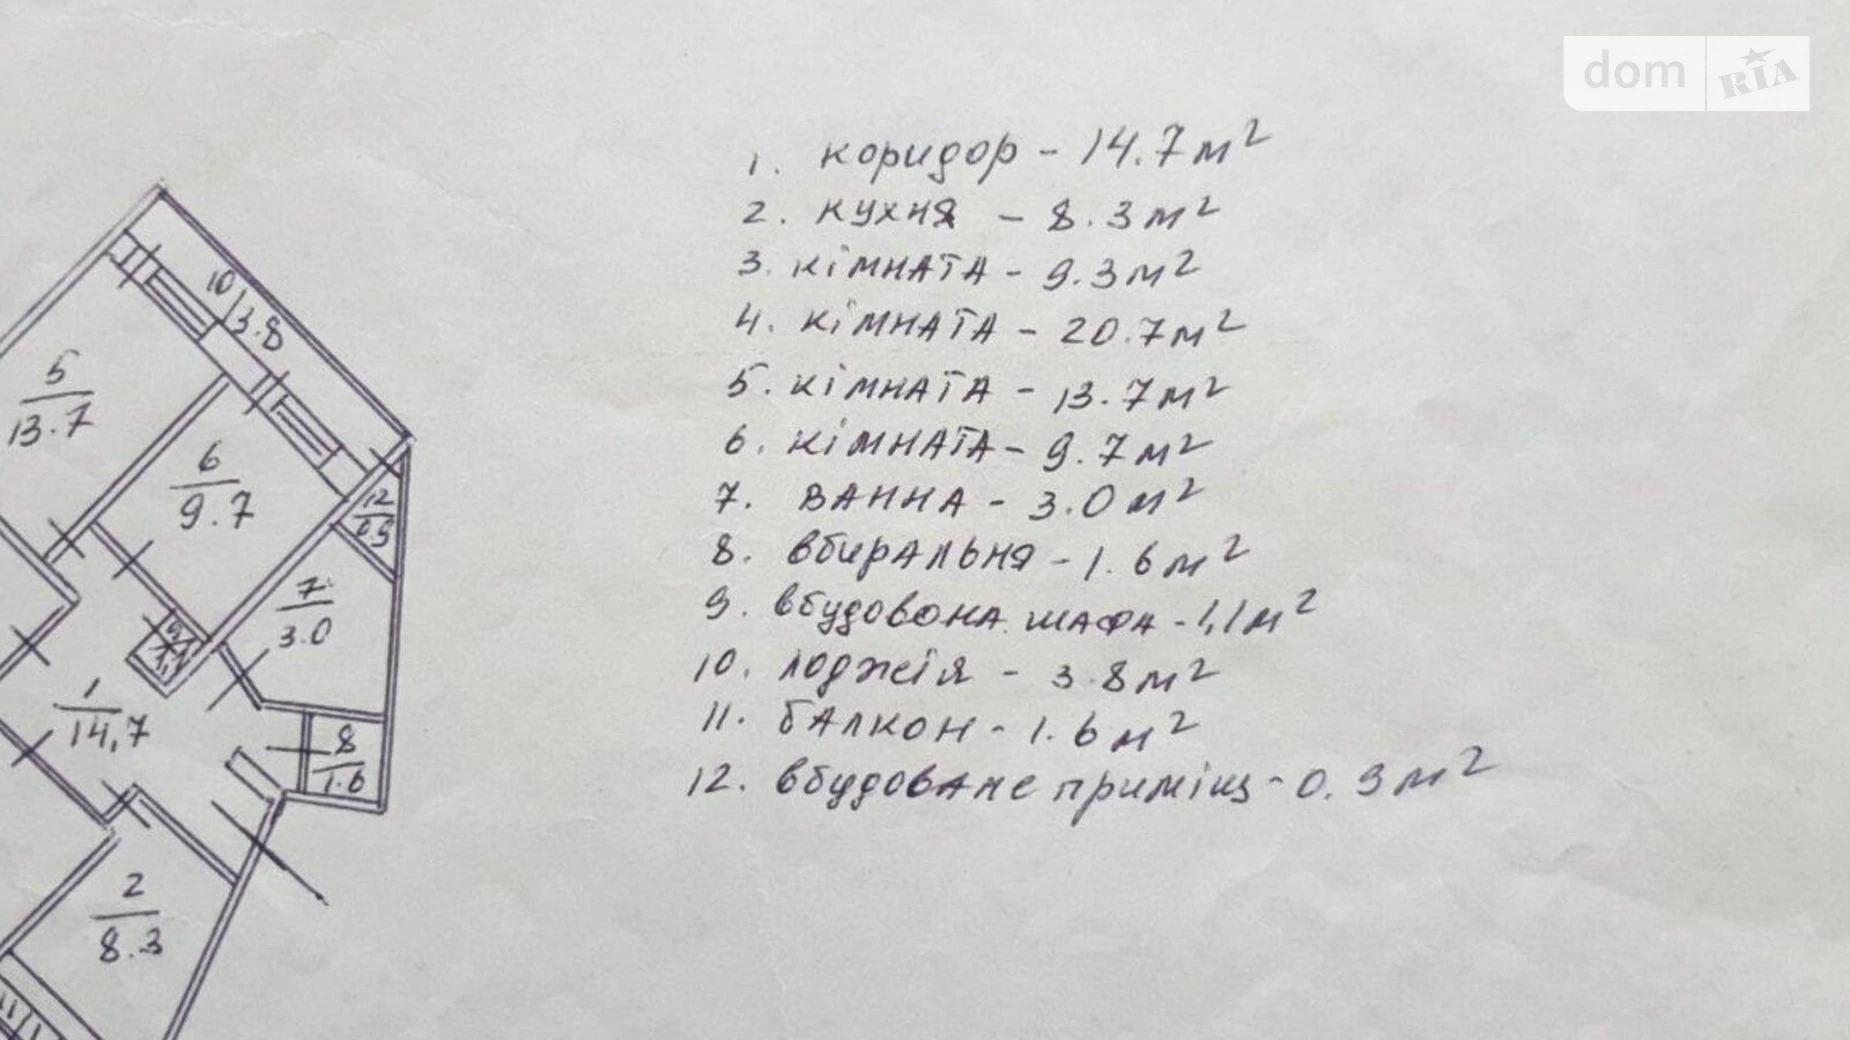 dom RIA
1. коридор - 14.7 м²
2. кухня - 8.3 м²
3. кімната - 9.3 м²
4. кімната - 20.7 м²
5. кімната - 13.7 м²
6. кімната - 9.7 м²
7. ванна - 3.0 м²
8. вбиральня - 1.6 м²
9. вбудовона шафа - 1,1 м²
10. лоджія - 3.8 м²
11. балкон - 1.6 м²
12. вбудоване приміщ - 0.9 м²
10/3.8
5
13.7
6
9.7
12
0.9
7
3.0
9
1,1
1
14,7
8
1.6
2
8.3